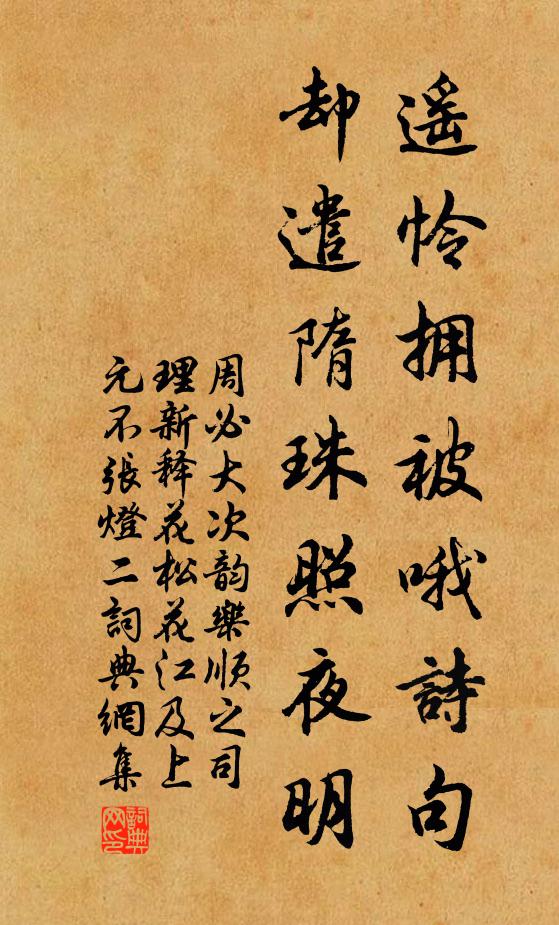 遥怜拥被哦詩句
却遣隋珠照夜明
周必大次韵樂顺之司
理新释花松花江及上
元不張燈二詞典網集
詞典网印